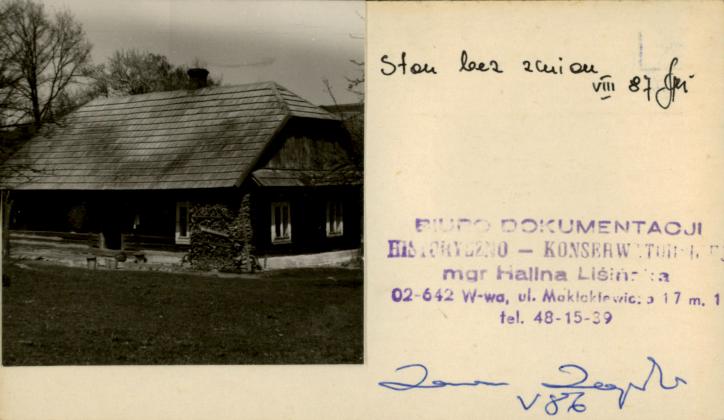 Stan bez zmian
VIII 87
BIURO DOKUMENTACJI
HISTORYCZNO – KONSERWATORSKIEJ
mgr Halina Lisińska
02-642 W-wa, ul. Makłakiewicza 17 m. 1
tel. 48-15-39
V 86